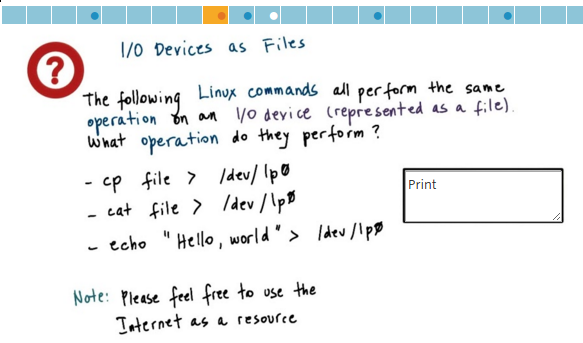 ?
I/O Devices as Files
The following Linux commands all perform the same
operation on an I/O device (represented as a file).
What operation do they perform?
- cp file > /dev/lp0
- cat file > /dev/lp0
- echo "Hello, world" > /dev/lp0
Print
Note: Please feel free to use the
Internet as a resource